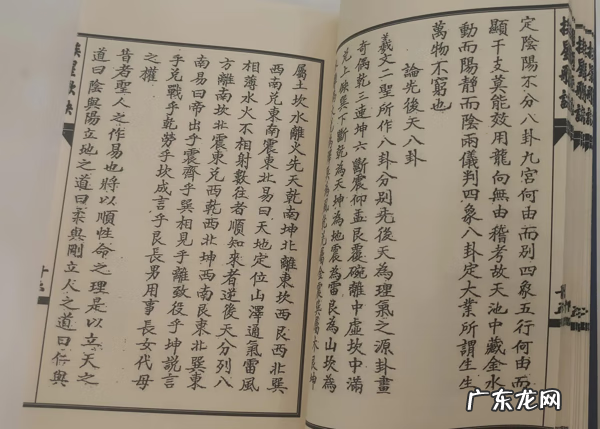 定陰陽不分八卦九宮何由而別四象五行何由而
顯干支莫能效用龍向無由稽考故天池中藏金水
動而陽靜而陰兩儀判四象八卦定大業所謂生生
萬物不窮也
論先後天八卦
羲文二聖所作八卦分別先後天為理氣之源卦畫
奇偶乾三連坤六斷震仰盂艮覆碗離中虛坎中滿
兌上缺巽下斷乾為天坤為地震為雷艮為山坎為
屬金震巽屬木艮坤
屬土坎水離火先天乾南坤北離東坎西艮西北巽
西南兌東南震東北易曰天地定位山澤通氣雷風
相薄水火不相射數往者順知來者逆後天分列八
方離南坎北震東兌西乾西北坤西南艮東北巽東
南易曰帝出乎震齊乎巽相見乎離致役乎坤說言
乎兌戰乎乾勞乎坎成言乎艮長男用事長女代母
之權
昔者聖人之作易也將以順性命之理是以立天之
道曰陰與陽立地之道曰柔與剛立人之道曰仁與
广东龙网